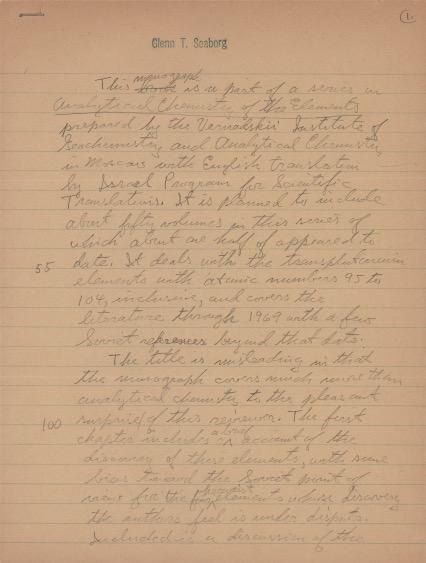 1.
Glenn T. Seaborg
monograph
This book is a part of a series on
Analytical Chemistry of the Elements
prepared by the Vernadskii Institute of
Geochemistry and Analytical Chemistry
in Moscow with English translation
by Israel Program for Scientific
Translations. It is planned to include
about fifty volumes in this series of
which about one half of appeared to
date. It deals with the transplutonium
55
elements with atomic numbers 95 to
104, inclusive, and covers the
literature through 1969 with a few
Soviet references beyond that date.
The title is misleading in that
the monograph covers much more than
analytical chemistry to the pleasant
100
surprise of this reviewer. The first
a brief
chapter includes account of the
discovery of these elements, with some
bias toward the Soviet point of
heaviest
view for the elements whose discovery
the authors feel is under dispute.
Included is a discussion of the